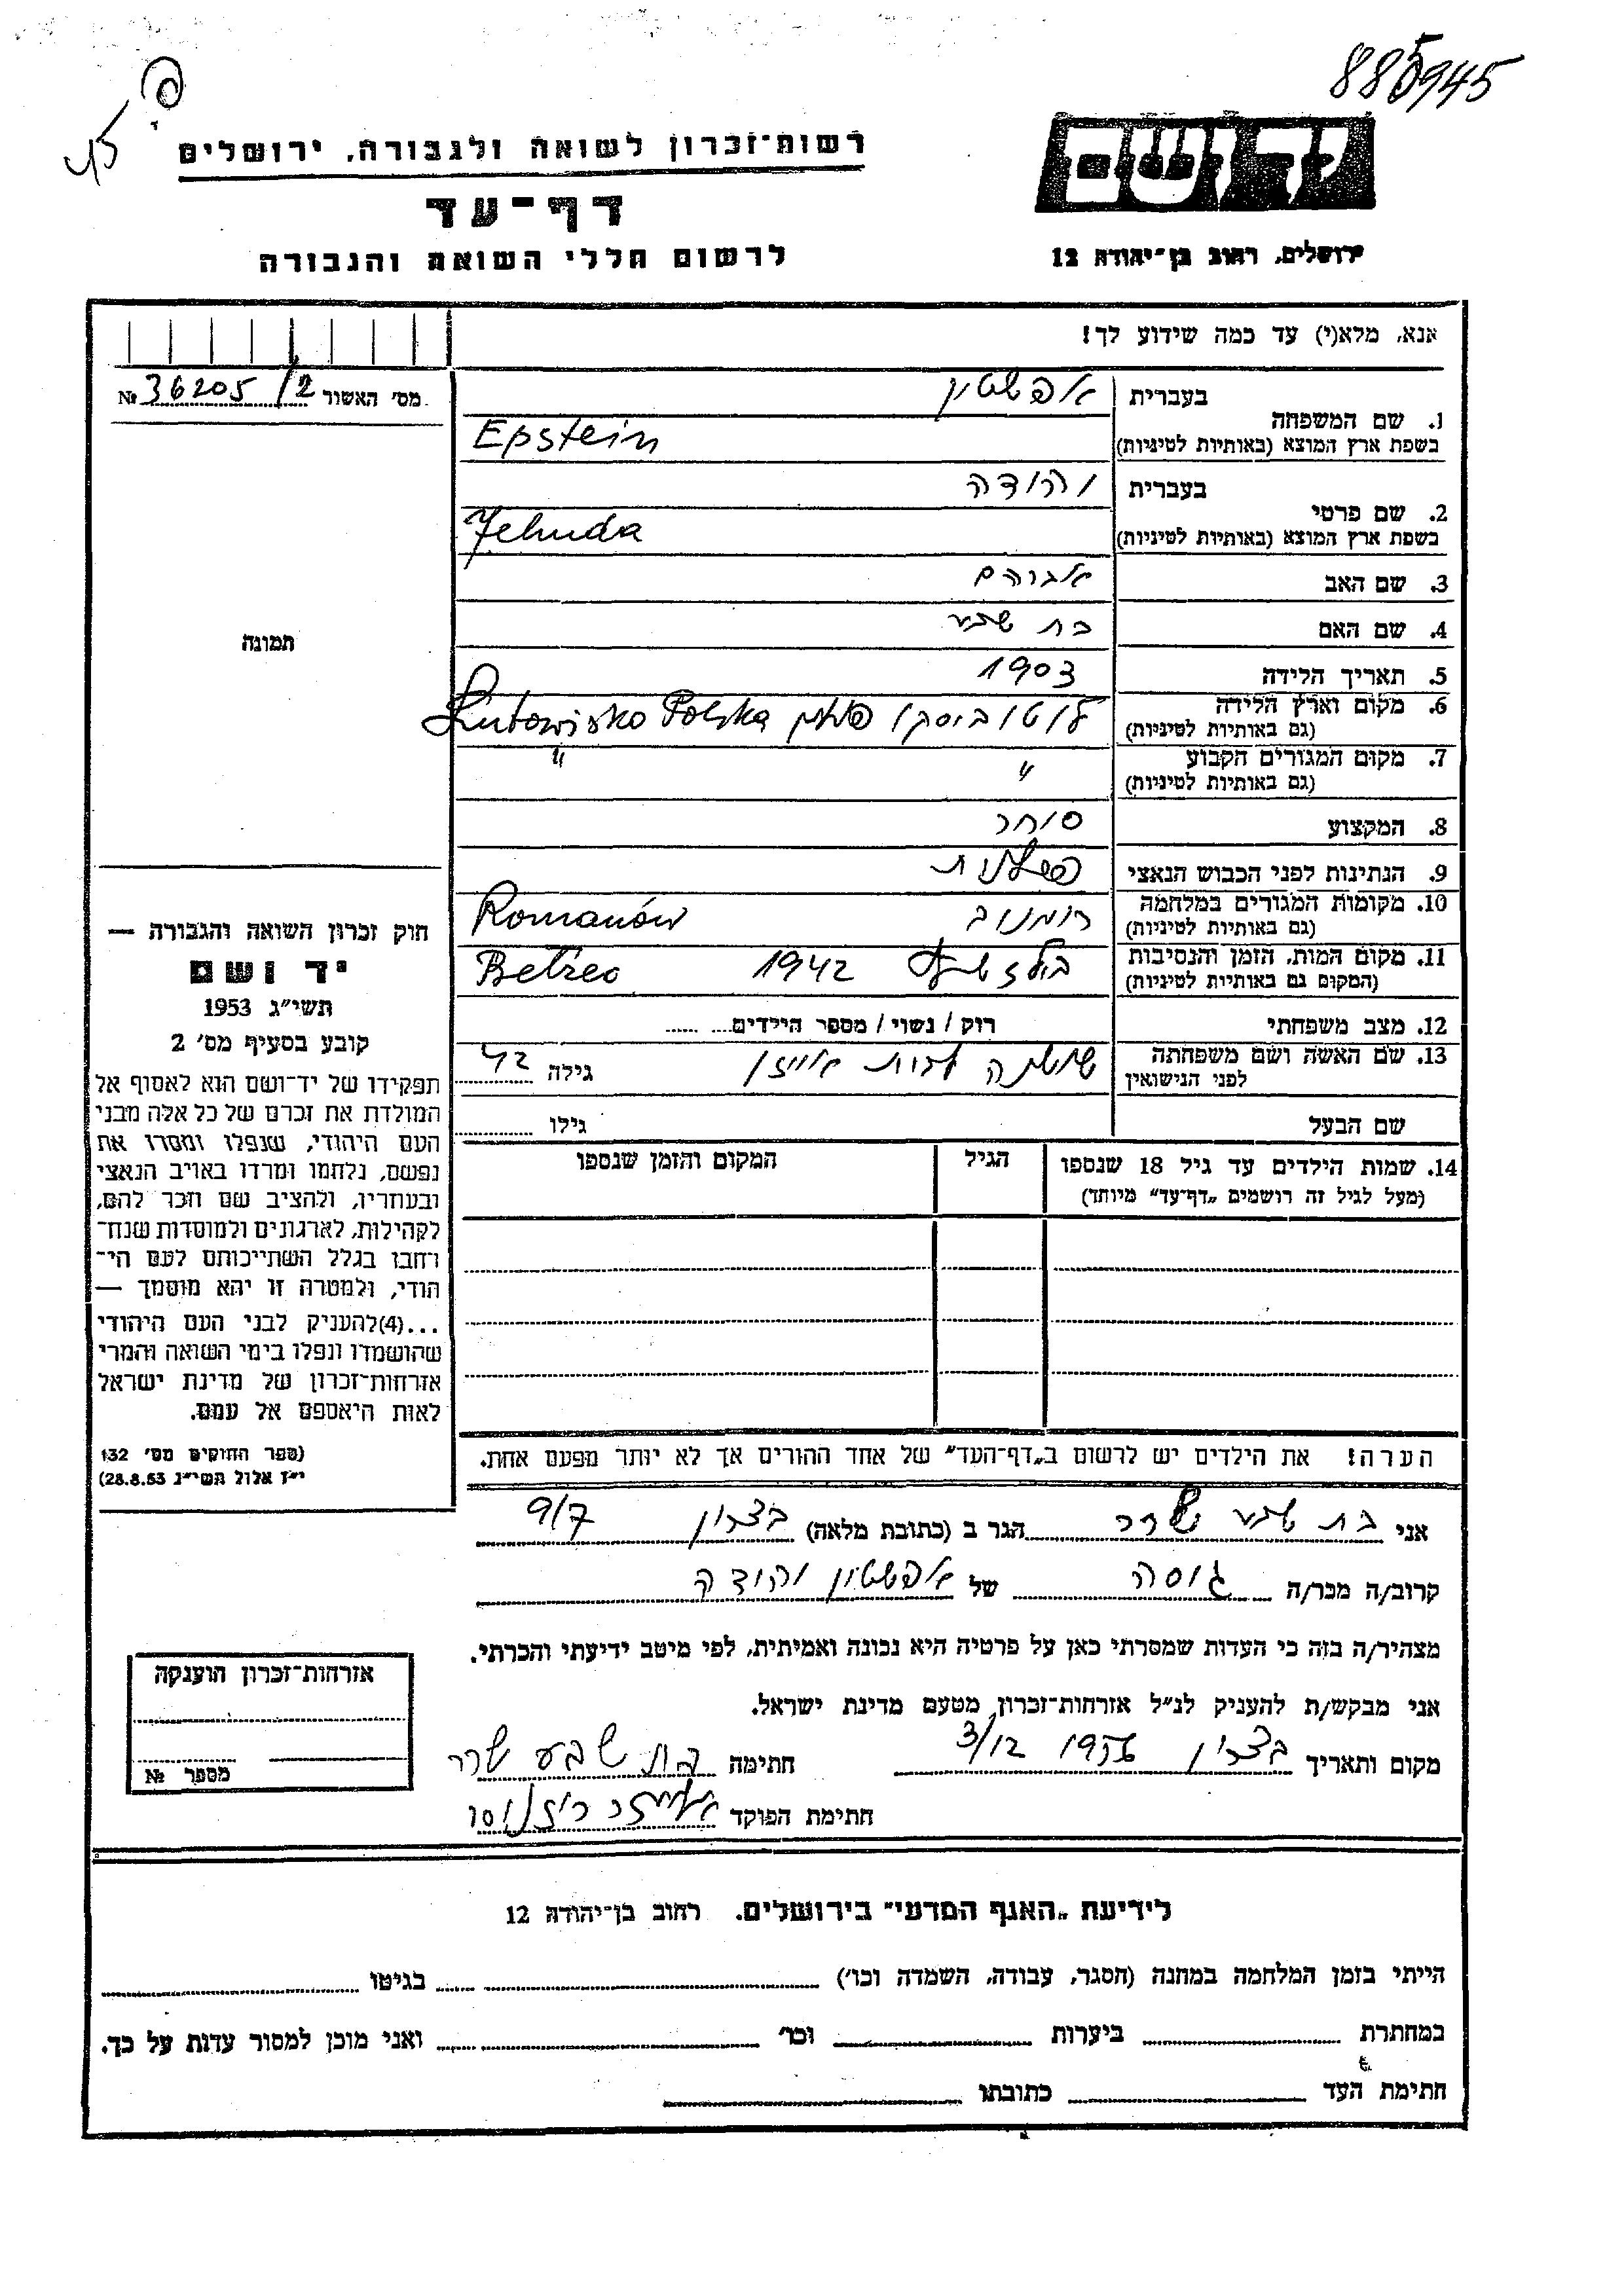 885945
רשות־זכרון לשואה ולגבורה, ירושלים
דף־עד
לרשום חללי השואה והגבורה
יד ושם
ירושלים, רחוב בן־יהודה 12
אנא, מלא(י) עד כמה שידוע לך!
מס' האשור № 36205/2
תמונה
1. שם המשפחה בעברית אפשטין
בשפת ארץ המוצא (באותיות לטיניות) Epstein
2. שם פרטי בעברית יהודה
בשפת ארץ המוצא (באותיות לטיניות) Jehuda
3. שם האב אברהם
4. שם האם בת שבע
5. תאריך הלידה 1903
6. מקום וארץ הלידה לוטוביסקו פולין Lutowisko Polska
(גם באותיות לטיניות)
7. מקום המגורים הקבוע " "
(גם באותיות לטיניות)
8. המקצוע סוחר
9. הנתינות לפני הכבוש הנאצי פולנית
10. מקומות המגורים במלחמה רומנוב Romanów
(גם באותיות לטיניות)
11. מקום המות, הזמן והנסיבות 1942 Betzec
(המקום גם באותיות לטיניות)
12. מצב משפחתי רוק / נשוי / מספר הילדים
13. שם האשה ושם משפחתה לבית גילה 42
לפני הנישואין
שם הבעל גילו
14. שמות הילדים עד גיל 18 שנספו הגיל המקום והזמן שנספו
(מעל לגיל זה רושמים „דף־עד" מיוחד)
חוק זכרון השואה והגבורה —
יד ושם
תשי"ג 1953
קובע בסעיף מס' 2
תפקידו של יד־ושם הוא לאסוף אל
המולדת את זכרם של כל אלה מבני
העם היהודי, שנפלו ומסרו את
נפשם, נלחמו ומרדו באויב הנאצי
ובעוזריו, ולהציב שם וזכר להם,
לקהילות, לארגונים ולמוסדות שנח־
רבו בגלל השתייכותם לעם הי־
הודי, ולמטרה זו יהא מוסמך —
...(4)להעניק לבני העם היהודי
שהושמדו ונפלו בימי השואה והמרי
אזרחות־זכרון של מדינת ישראל
לאות היאספם אל עמם.
(ספר החוקים מס' 132
י"ז אלול תשי"ג 28.8.53)
הערה! את הילדים יש לרשום ב„דף־העד" של אחד ההורים אך לא יותר מפעם אחת.
אני בת שבע שרר הגר ב (כתובת מלאה) בצרון 9/7
קרוב/ה מכר/ה גיסה של אפשטין יהודה
מצהיר/ה בזה כי העדות שמסרתי כאן על פרטיה היא נכונה ואמיתית, לפי מיטב ידיעתי והכרתי.
אני מבקש/ת להעניק לנ"ל אזרחות־זכרון מטעם מדינת ישראל.
מקום ותאריך בצרון 3/12 1956 חתימה בת שבע שרר
חתימת הפוקד
אזרחות־זכרון הוענקה
מספר №
לידיעת „האגף המדעי" בירושלים. רחוב בן־יהודה 12
הייתי בזמן המלחמה במחנה (הסגר, עבודה, השמדה וכו') בגיטו
במחתרת ביערות וכו' ואני מוכן למסור עדות על כך.
חתימת העד כתובתו